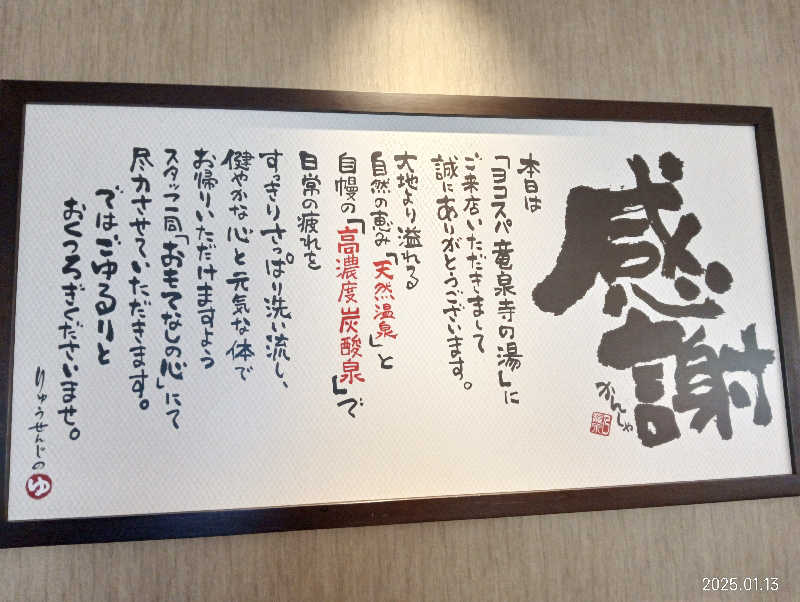 感謝
かんしゃ
本日は
「ヨコスパ竜泉寺の湯」に
ご来店いただきまして
誠にありがとうございます。
大地より溢れる
自然の恵み「天然温泉」と
自慢の「高濃度炭酸泉」で
日常の疲れを
すっきりさっぱり洗い流し、
健やかな心と元気な体で
お帰りいただけますよう
スタッフ一同「おもてなしの心」にて
尽力させていただきます。
ではごゆるりと
おくつろぎくださいませ。
りゅうせんじの
ゆ
2025.01.13